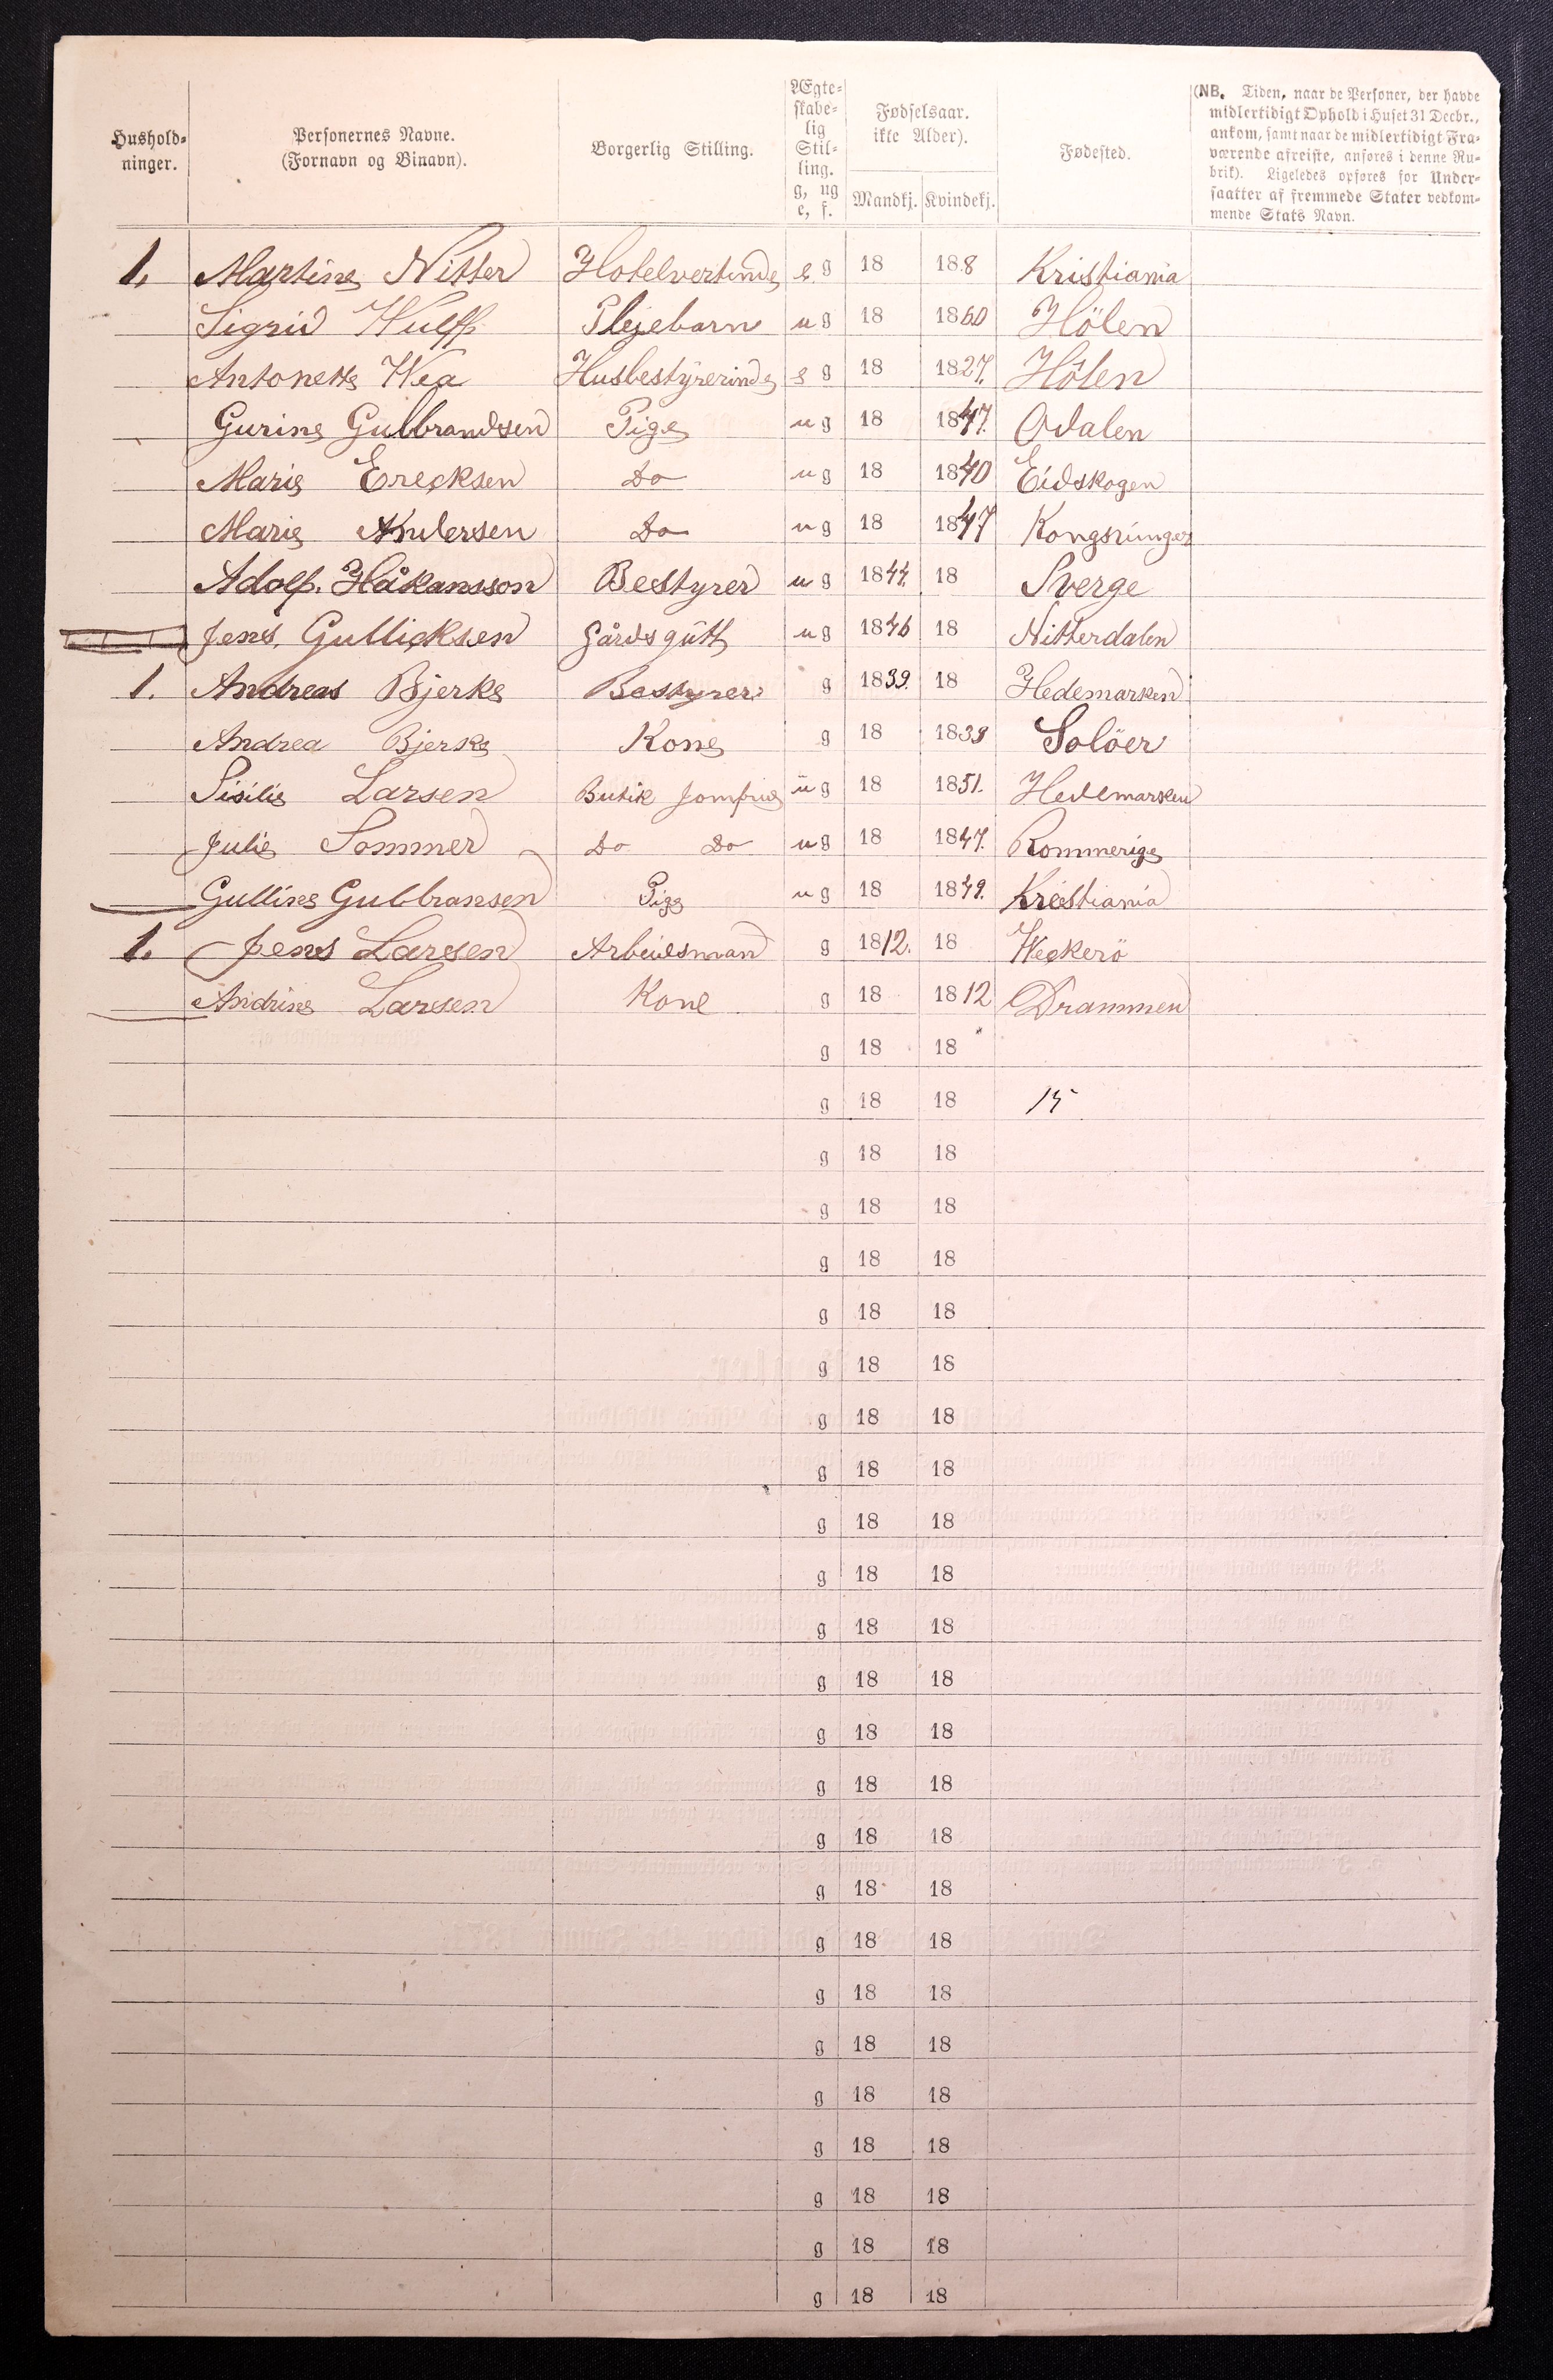 Hushold-
ninger.
Personernes Navne.
(Fornavn og Binavn).
Borgerlig Stilling.
Ægte-
skabe-
lig
Stil-
ling.
g, ug
e, f.
Fødselsaar.
ikke Alder).
Mandkj. Kvindekj.
Fødested.
(NB. Tiden, naar de Personer, der havde
midlertidigt Ophold i Huset 31 Decbr.,
ankom, samt naar de midlertidigt Fra-
værende afreiste, anføres i denne Ru-
brik). Ligeledes opføres for Under-
saatter af fremmede Stater vedkom-
mende Stats Navn.
1. Martine Nitter Hotelvertinde e g 18 18.8 Kristiania
Sigrid Wulff Plejebarn u g 18 1860 Hölen
Antonette Wea Husbestyrerinde e g 18 1827. Hölen
Gurine Gulbrandsen Pige u g 18 1847. Odalen
Marie Erecksen Do u g 18 1840 Eidskogen
Marie Andersen Do u g 18 1847 Kongsvinger
Adolf. Håkansson Bestyrer u g 1844. 18 Sverge
Jens. Gullicksen Gårdsgütt u g 1846 18 Nitterdalen
1. Andreas Bjerke Bestyrer g 1839. 18 Hedemarken
Andrea Bjerke Kone g 18 1839 Solöer
Sisilie Larsen Butik Jomfrue u g 18 1851. Hedemarken
Julie Sommer Do Do u g 18 1847. Rommerige
Gulline Gulbransen Pige u g 18 1849. Kristiania
1. Jens Larsen Arbeidsmand g 1812. 18 Weckerö
Andrine Larsen Kone g 18 1812 Drammen
g 18 18
g 18 18 15
g 18 18
g 18 18
g 18 18
g 18 18
g 18 18
g 18 18
g 18 18
g 18 18
g 18 18
g 18 18
g 18 18
g 18 18
g 18 18
g 18 18
g 18 18
g 18 18
g 18 18
g 18 18
g 18 18
g 18 18
g 18 18
g 18 18
g 18 18